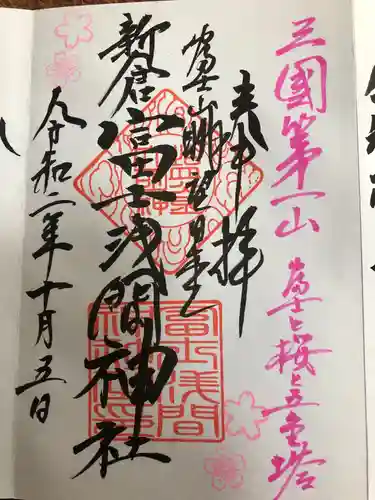 三國第一山
富士と桜と五重塔
奉拝
富士山眺望日本一
新倉富士浅間神社
令和二年十月五日
富士浅間